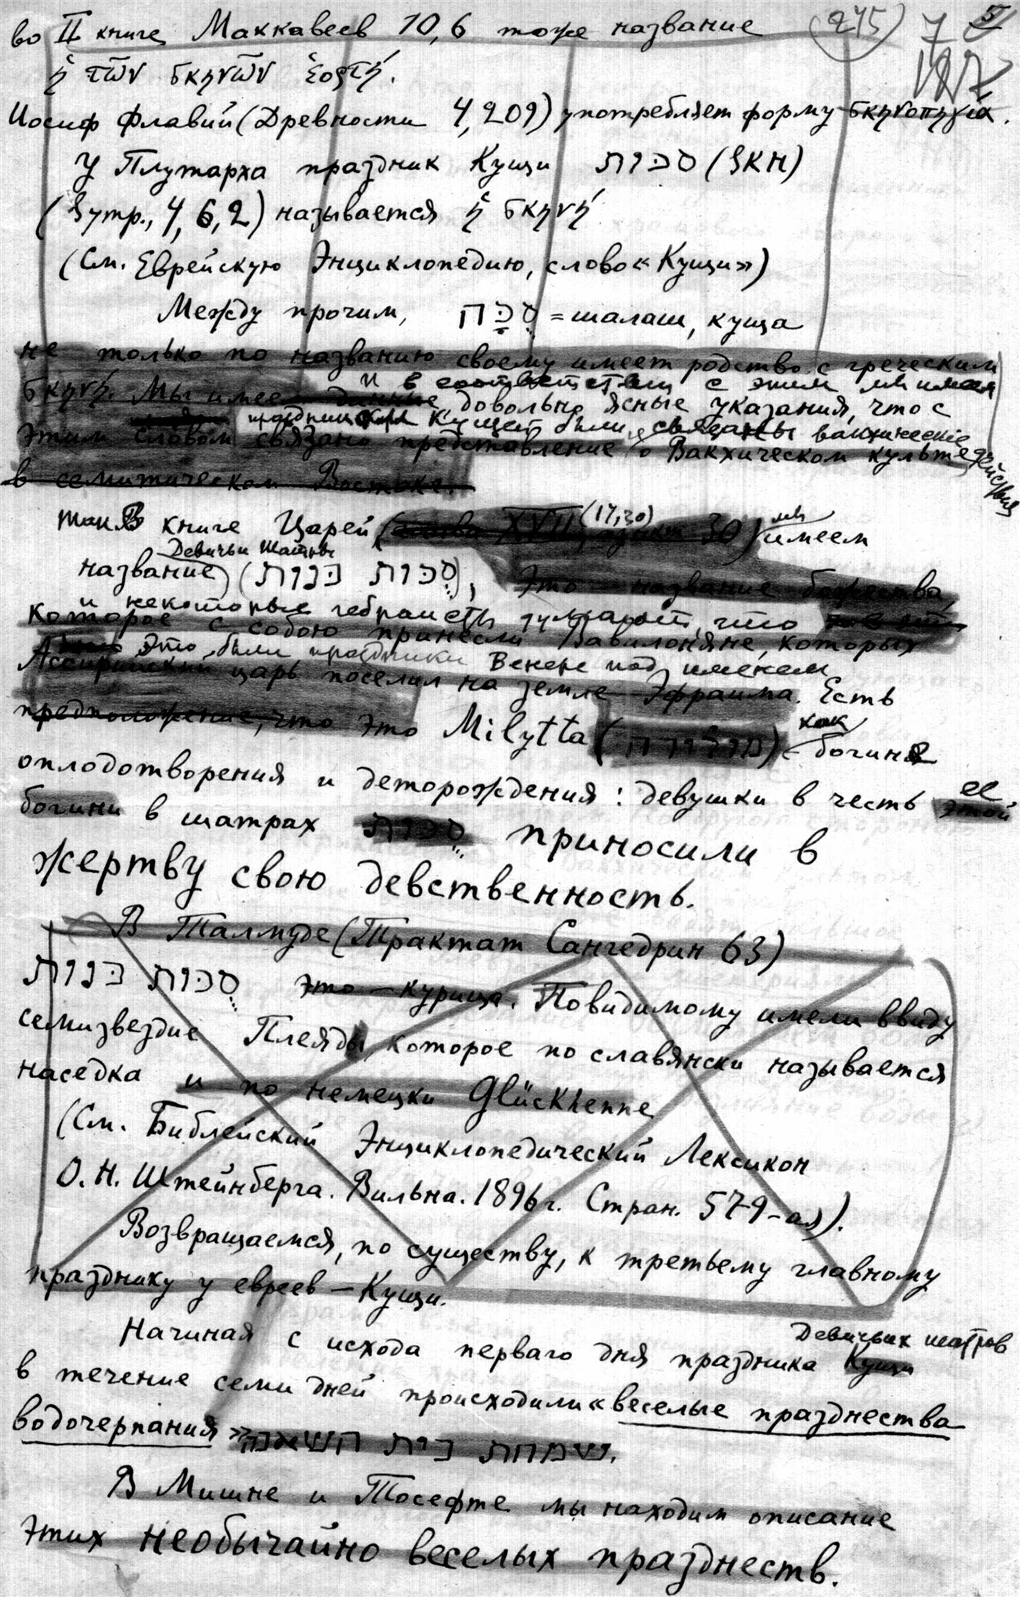 во II книге Маккавеев 10,6 тоже название (245) 7 5
ἡ τῶν σκηνῶν ἑορτή. 127
Иосиф Флавий (Древности 4,209) употребляет форму σκηνοπηγία.
У Плутарха праздник Кущи סכות (SKH)
(Sутр., 4, 6, 2) называется ἡ σκηνή
(См. Еврейскую Энциклопедию, слово «Кущи»)
Между прочим, סֻכָּה = шалаш, куща
не только по названию своему имеет родство с греческим
и в соответствии с этим мы имеем
σκηνή. Мы имеем данные довольно ясные указания, что с
праздником Кущей были связаны вакхические
этим словом связано представление о Вакхическом культе действия
в семитическом Востоке.
так в книге Царей (глава XVII 30) (17,30) мы имеем
Девичьи Шатры
название (סֻכות בנות), Это название божества,
и некоторые гебраисты думают, что
которое с собою принесли Вавилоняне, которых
это были праздники Венере под именем
Ассирийский царь поселил на земле Эфраима. Есть
предположение, что это Milytta (מולידה) - как богиня
оплодотворения и деторождения: девушки в честь ее этой
богини в шатрах סֻכות приносили в
жертву свою девственность.
В Талмуде (Трактат Сангедрин 63)
סֻכות בנות это - курица. Повидимому имели ввиду
семизвездие Плеяды, которое по славянски называется
наседка и по немецки Glückhenne
(См. Библейский Энциклопедический Лексикон
О. Н. Штейнберга. Вильна. 1896 г. Стран. 579-ая).
Возвращаемся, по существу, к третьему главному
празднику у евреев — Кущи.
Девичьих шатров
Начиная с исхода перваго дня праздника Кущи
в течение семи дней происходили «веселые празднества
водочерпания» שמחת בית השאבה.
В Мишне и Тосефте мы находим описание
этих необычайно веселых празднеств.